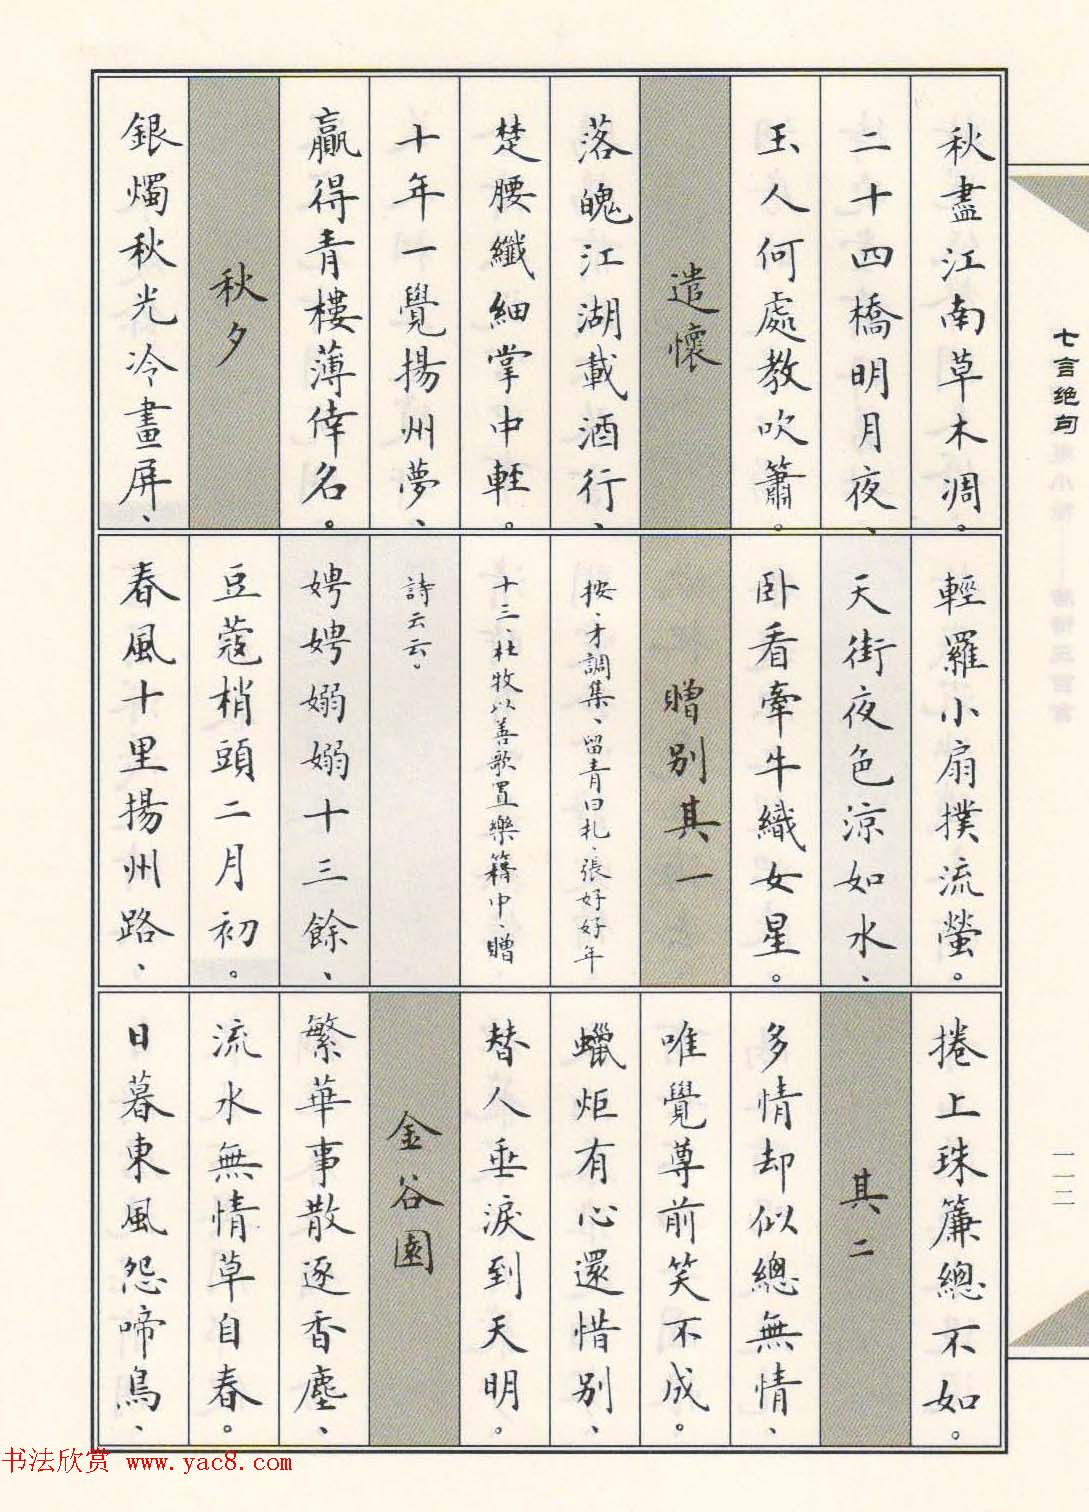 秋盡江南草木凋。
二十四橋明月夜、
玉人何處教吹簫。
遣懷
落魄江湖載酒行、
楚腰纖細掌中輕。
十年一覺揚州夢、
贏得青樓薄倖名。
秋夕
銀燭秋光冷畫屏、
輕羅小扇撲流螢。
天街夜色涼如水、
卧看牽牛織女星。
贈别其一
按、才調集、留青日札、張好好年
十三、杜牧以善歌置樂籍中、贈
詩云云。
娉娉嫋嫋十三餘、
豆蔻梢頭二月初。
春風十里揚州路、
捲上珠簾總不如。
其二
多情却似總無情、
唯覺尊前笑不成。
蠟炬有心還惜别、
替人垂淚到天明。
金谷園
繁華事散逐香塵、
流水無情草自春。
日暮東風怨啼鳥、
七言绝句
一一二
书法欣赏 www.yac8.com